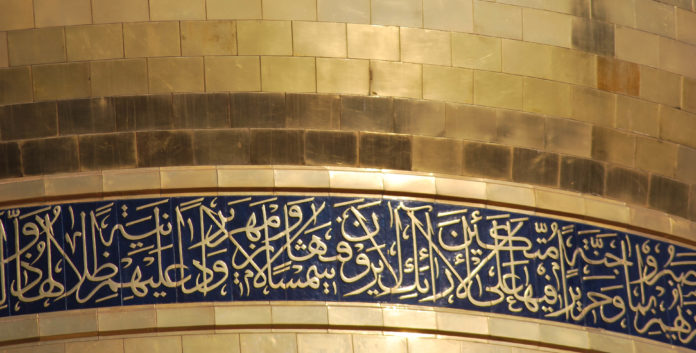 بما صبروا جنة وحريرا متكئين فيها على الأرائك لا يرون فيها شمسا ولا زمهريرا ودانية عليهم ظلالها